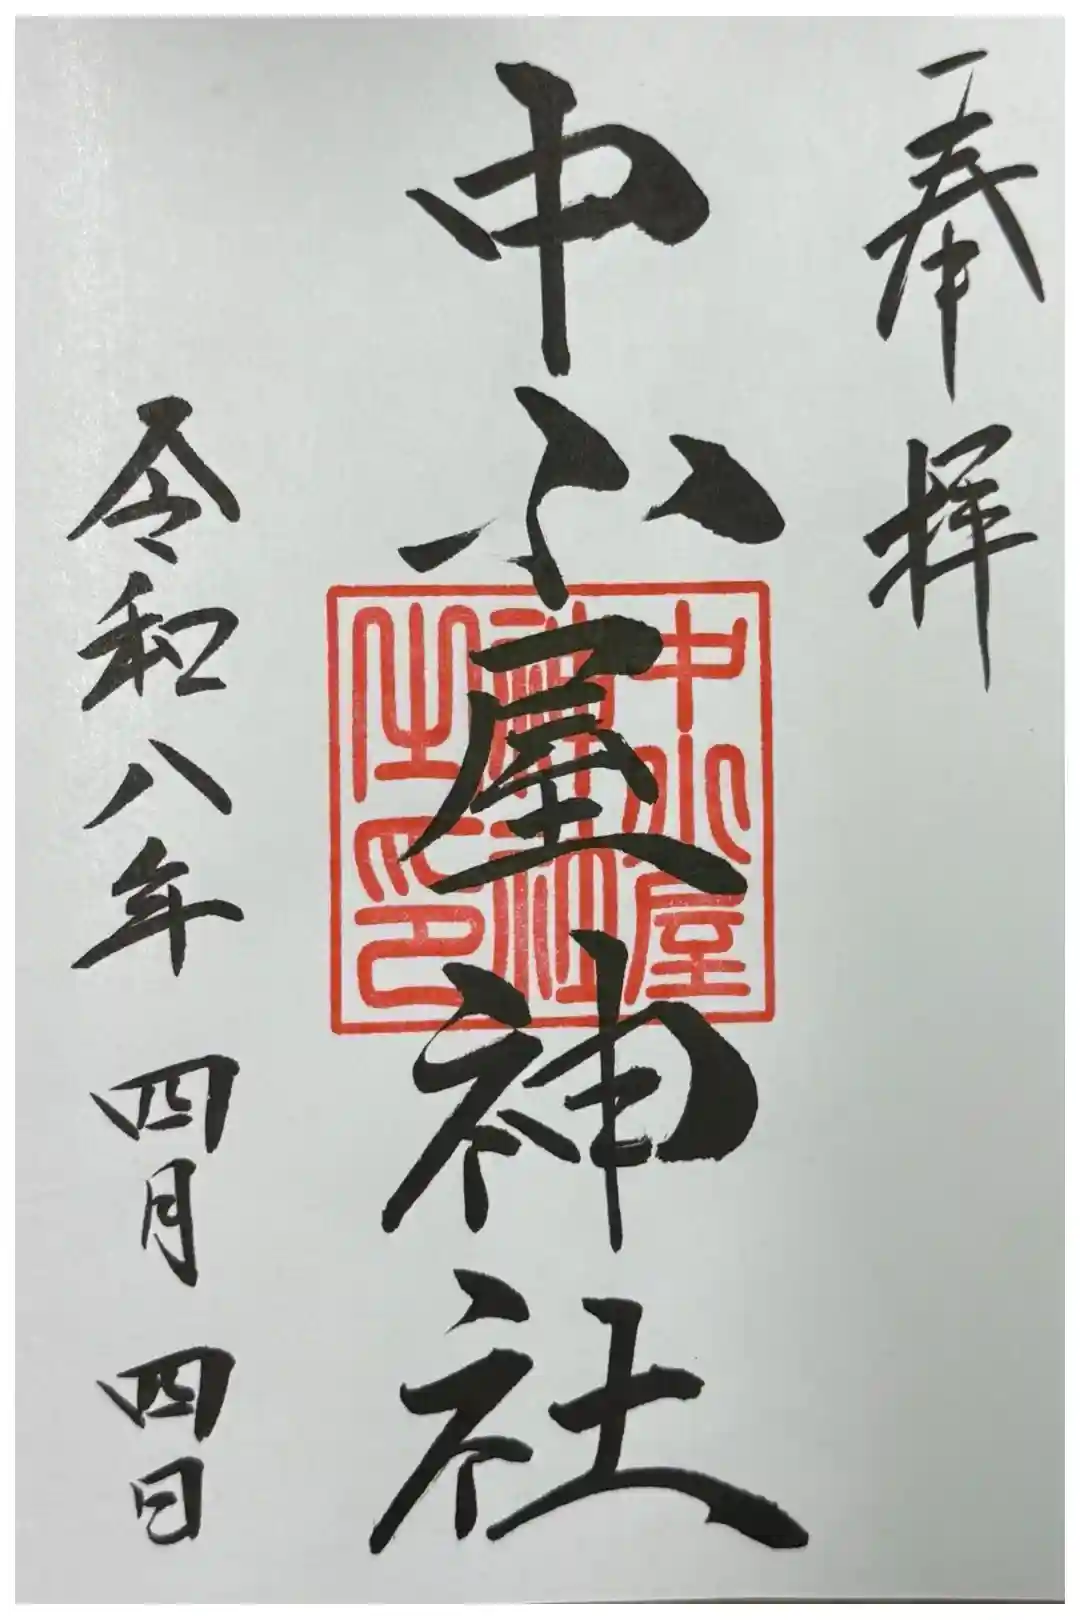 奉拝
中小屋神社
中小屋
神社
之印
令和八年 四月 四日